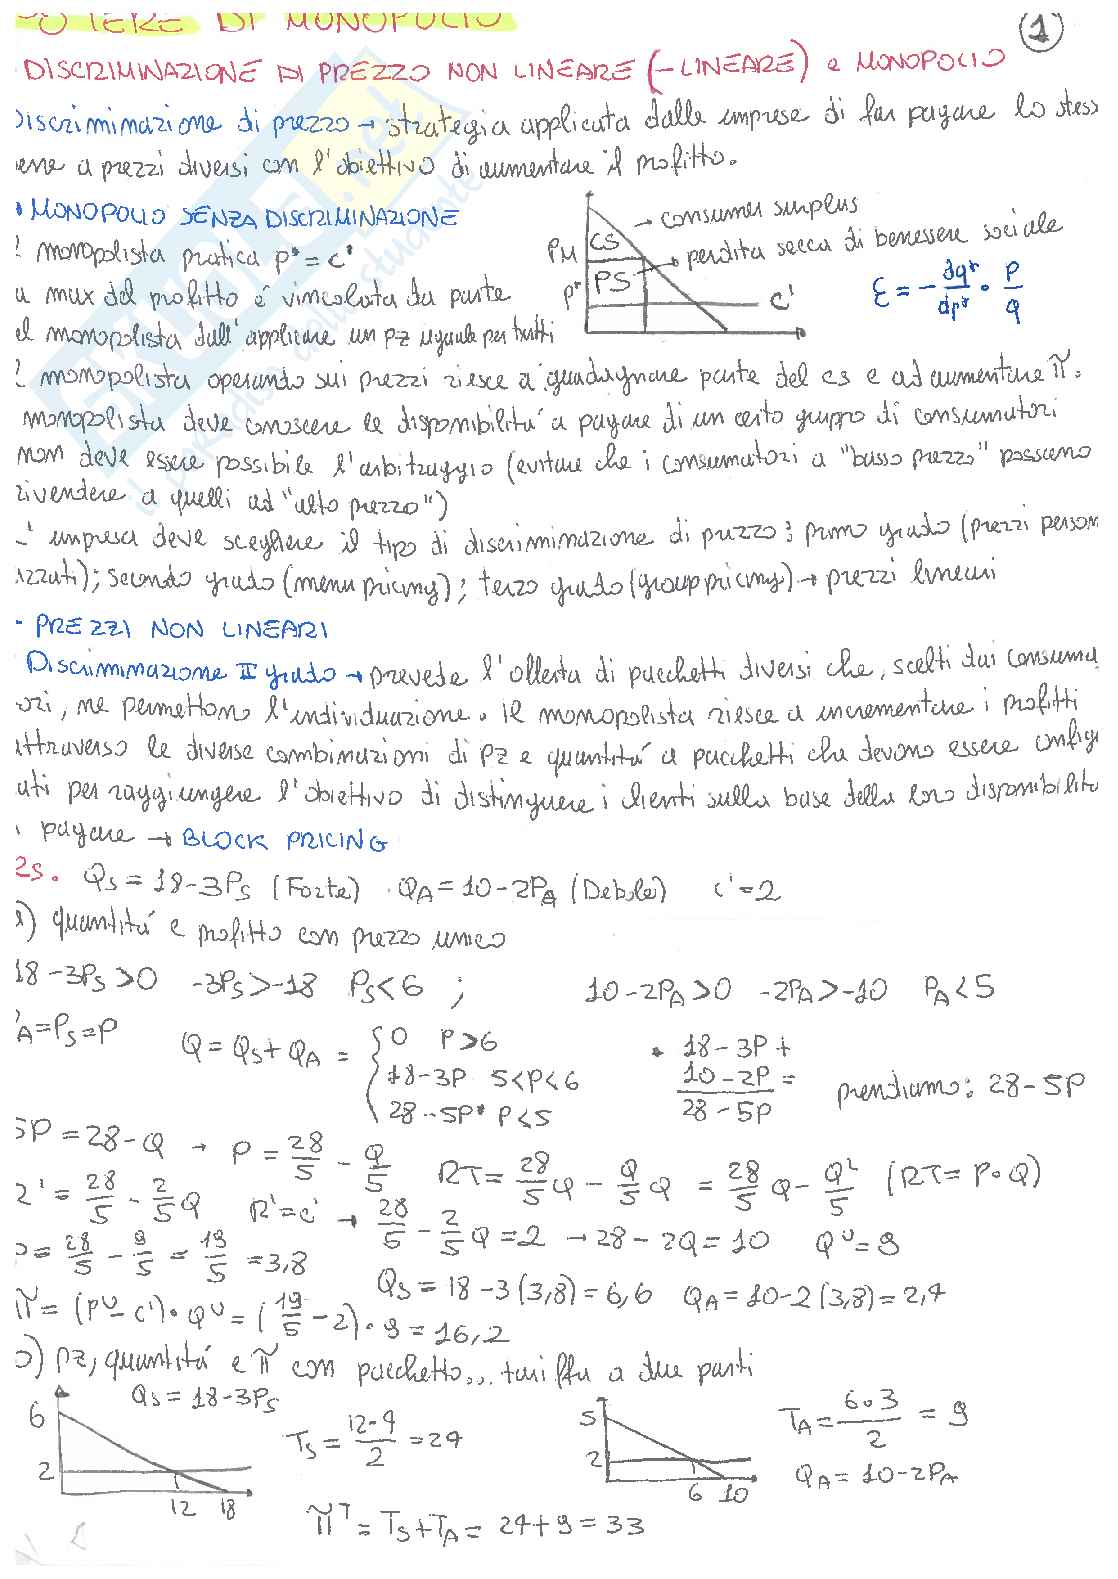 POTERE DI MONOPOLIO
1
DISCRIMINAZIONE DI PREZZO NON LINEARE (-LINEARE) e MONOPOLIO
Discriminazione di prezzo → strategia applicata dalle imprese di far pagare lo stess
ene a prezzi diversi con l'obiettivo di aumentare il profitto.
• MONOPOLIO SENZA DISCRIMINAZIONE
l monopolista pratica p* = c'
a max del profitto é vincolata da parte
el monopolista dall'applicare un pz uguale per tutti
PM
CS
PS
p*
c'
→ consumer surplus
→ perdita secca di benessere sociale
ε = - dq*/dp* • P/Q
l monopolista operando sui prezzi riesce a guadagnare parte del cs e ad aumentare π.
monopolista deve conoscere le disponibilitá a pagare di un certo gruppo di consumatori
non deve essere possibile l'arbitraggio (evitare che i consumatori a "basso prezzo" possano
rivendere a quelli ad "alto prezzo")
L'impresa deve scegliere il tipo di discriminazione di prezzo: primo grado (prezzi person
izzati); secondo grado (menu pricing); terzo grado (group pricing) → prezzi lineari
- PREZZI NON LINEARI
Discriminazione II grado → prevede l'offerta di pacchetti diversi che, scelti dai consuma
ori, ne permettono l'individuazione. Il monopolista riesce a incrementare i profitti
attraverso le diverse combinazioni di pz e quantitá a pacchetti che devono essere config
ati per raggiungere l'obiettivo di distinguere i clienti sulla base della loro disponibilita
pagare → BLOCK PRICING
Es. Qs = 18-3Ps (Forte) . QA = 10-2PA (Debole) c' = 2
a) quantitá e profitto con prezzo unico
18-3Ps>0 -3Ps>-18 Ps<6 ; 10-2PA>0 -2PA>-10 PA<5
PA=Ps=P Q = Qs + QA = { 0 P>6
18-3P 5<P<6
28-5P* P<5
* 18-3P +
10-2P =
28-5P
prendiamo: 28-5P
5P = 28-Q → P = 28/5 - Q/5 RT = 28/5 Q - Q/5 Q = 28/5 Q - Q²/5 (RT = P•Q)
R' = 28/5 - 2/5 Q R'=c' → 28/5 - 2/5 Q = 2 → 28-2Q = 10 Qᵁ = 9
P = 28/5 - 9/5 = 19/5 = 3,8 Qs = 18-3(3,8) = 6,6 QA = 10-2(3,8) = 2,4
π = (Pᵁ-c')•Qᵁ = (19/5 - 2)•9 = 16,2
b) pz, quantitá e π con pacchetto... tariffa a due parti
Qs = 18-3Ps
6
2
12 18
Ts = 12•4/2 = 24
5
2
6 10
TA = 6•3/2 = 9
QA = 10-2PA
πᵀ = Ts+TA = 24+9 = 33